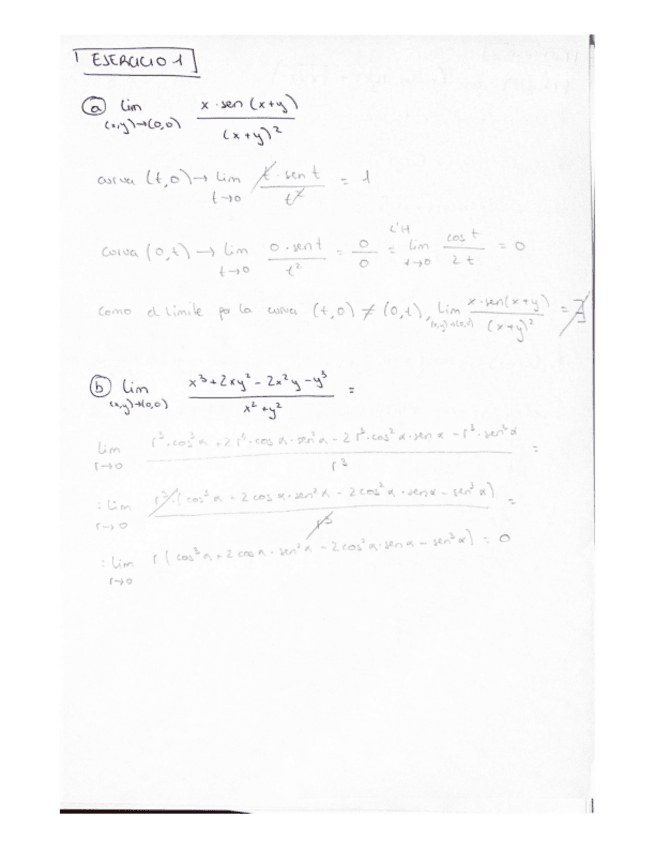 EJERCICIO 1
a lim (x,y)→(0,0) x·sen(x+y) / (x+y)²
curva (t,0) → lim t→0 t·sen t / t² = 1
curva (0,t) → lim t→0 0·sen t / t² = 0/0 = L'H lim t→0 cos t / 2t = 0
como el límite por la curva (t,0) ≠ (0,t), lim (x,y)→(0,0) x·sen(x+y) / (x+y)² = ∄
b lim (x,y)→(0,0) x³+2xy²-2x²y-y³ / x²+y² =
lim r→0 r³·cos³α+2r³·cosα·sen²α-2r³·cos²α·senα-r³·sen³α / r³ =
: lim r→0 r³(cos³α+2cosα·sen²α-2cos²α·senα-sen³α) / r³ =
: lim r→0 r(cos³α+2cosα·sen²α-2cos²α·senα-sen³α) = 0